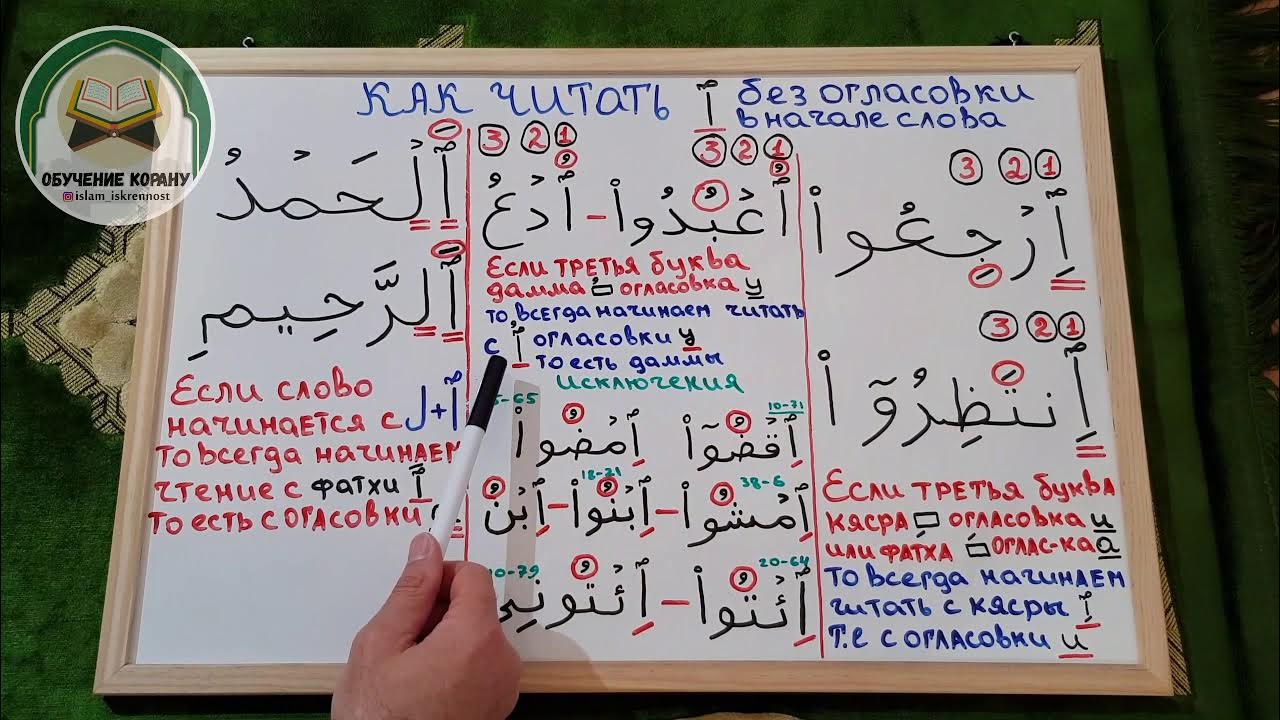 ОБУЧЕНИЕ КОРАНУ
islam_iskrennost
КАК ЧИТАТЬ ٱ без огласовки
в начале слова
ٱلْحَمْدُ
ٱلرَّحِيمِ
Если слово
начинается с ٱ+ل
то всегда начинаем
чтение с фатхи ٱَ
то есть с огасовки
3 2 1
3 2 1
ٱعْبُدُوا۟ - ٱدْعُ
Если третья буква
дамма огласовка у
то, всегда начинаем читать
с ٱ огласовки у
то есть даммы
исключения
-65
10-71
ٱِقْضُوٓا۟ ٱِمْضُوا۟
18-21
38-6
ٱِمْشُوا۟ - ٱِبْنُوا۟ - ٱِبْنَ
10-79
20-64
ٱِئْتُوا۟ - ٱِئْتُونِي
3 2 1
ٱِرْجِعُوا۟
3 2 1
ٱِنتَظِرُوٓا۟
Если третья буква
кясра огласовка и
или фатха оглас-ка а
то всегда начинаем
читать с кясры ٱِ
т.е с огласовки и